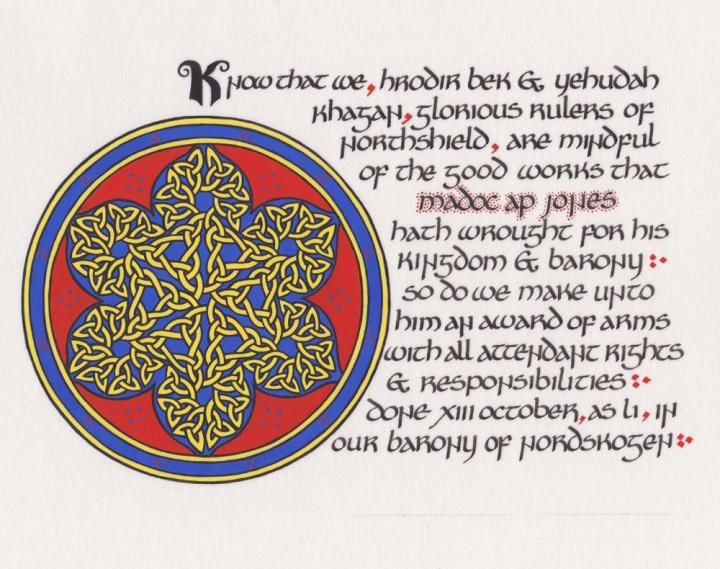 Know that we, hrodir bek & yehudah
khagan, glorious rulers of
northshield, are mindful
of the good works that
madoc ap jones
hath wrought for his
kingdom & barony
so do we make unto
him an award of arms
with all attendant rights
& responsibilities
done xiii october, as li, in
our barony of nordskogen